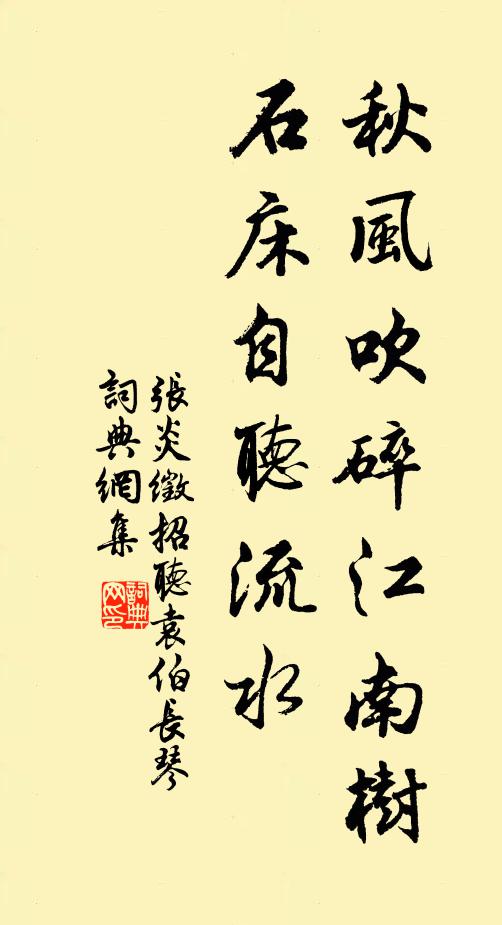 秋風吹碎江南樹
石床自聽流水
張炎徵招聽袁伯長琴
詞典網集
詞典
网印